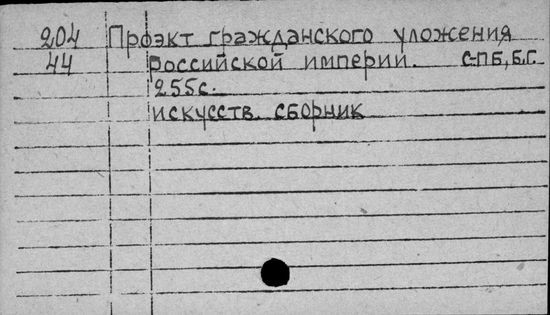 204 Проэкт гражданского уложения
44 Российской империи. С-ПБ, Б.Г.
255с.
искусств. сборник